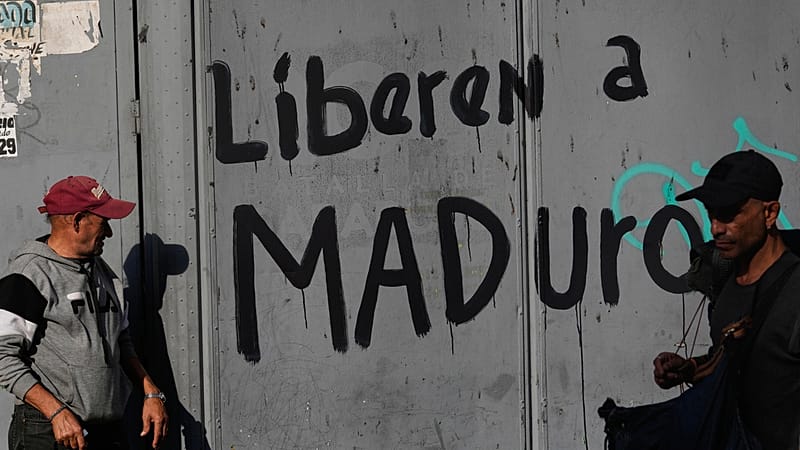 Liberen a
MADuro
FILA
29